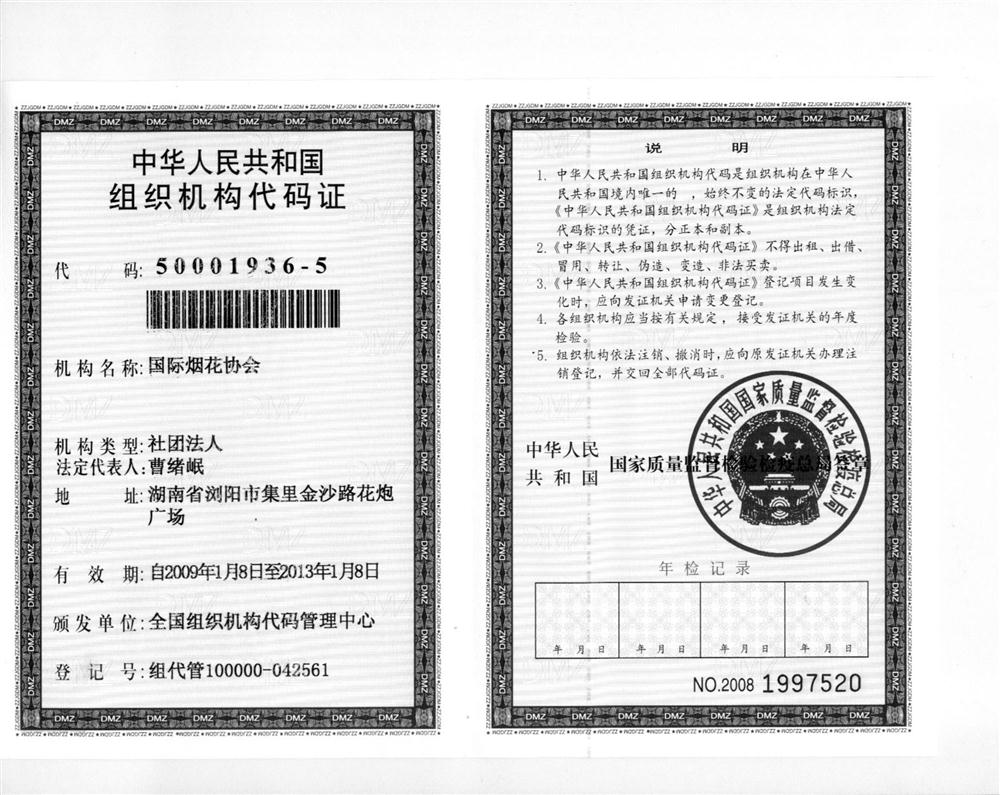 中华人民共和国
组织机构代码证
代 码: 50001936-5
机构名称: 国际烟花协会
机构类型: 社团法人
法定代表人: 曹绪岷
地 址: 湖南省浏阳市集里金沙路花炮
广场
有 效 期: 自2009年1月8日至2013年1月8日
颁发单位: 全国组织机构代码管理中心
登 记 号: 组代管100000-042561
说 明
1. 中华人民共和国组织机构代码是组织机构在中华人
民共和国境内唯一的 ，始终不变的法定代码标识，
《中华人民共和国组织机构代码证》是组织机构法定
代码标识的凭证，分正本和副本。
2.《中华人民共和国组织机构代码证》不得出租、出借、
冒用、转让、伪造、变造、非法买卖。
3.《中华人民共和国组织机构代码证》登记项目发生变
化时，应向发证机关申请变更登记。
4. 各组织机构应当按有关规定，接受发证机关的年度
检验。
5. 组织机构依法注销、撤消时，应向原发证机关办理注
销登记，并交回全部代码证。
中华人民共和国国家质量监督检验检疫总局
中华人民
共 和 国
国家质量监督检验检疫总局签章
年检记录
年 月 日 年 月 日 年 月 日 年 月 日
NO.2008 1997520